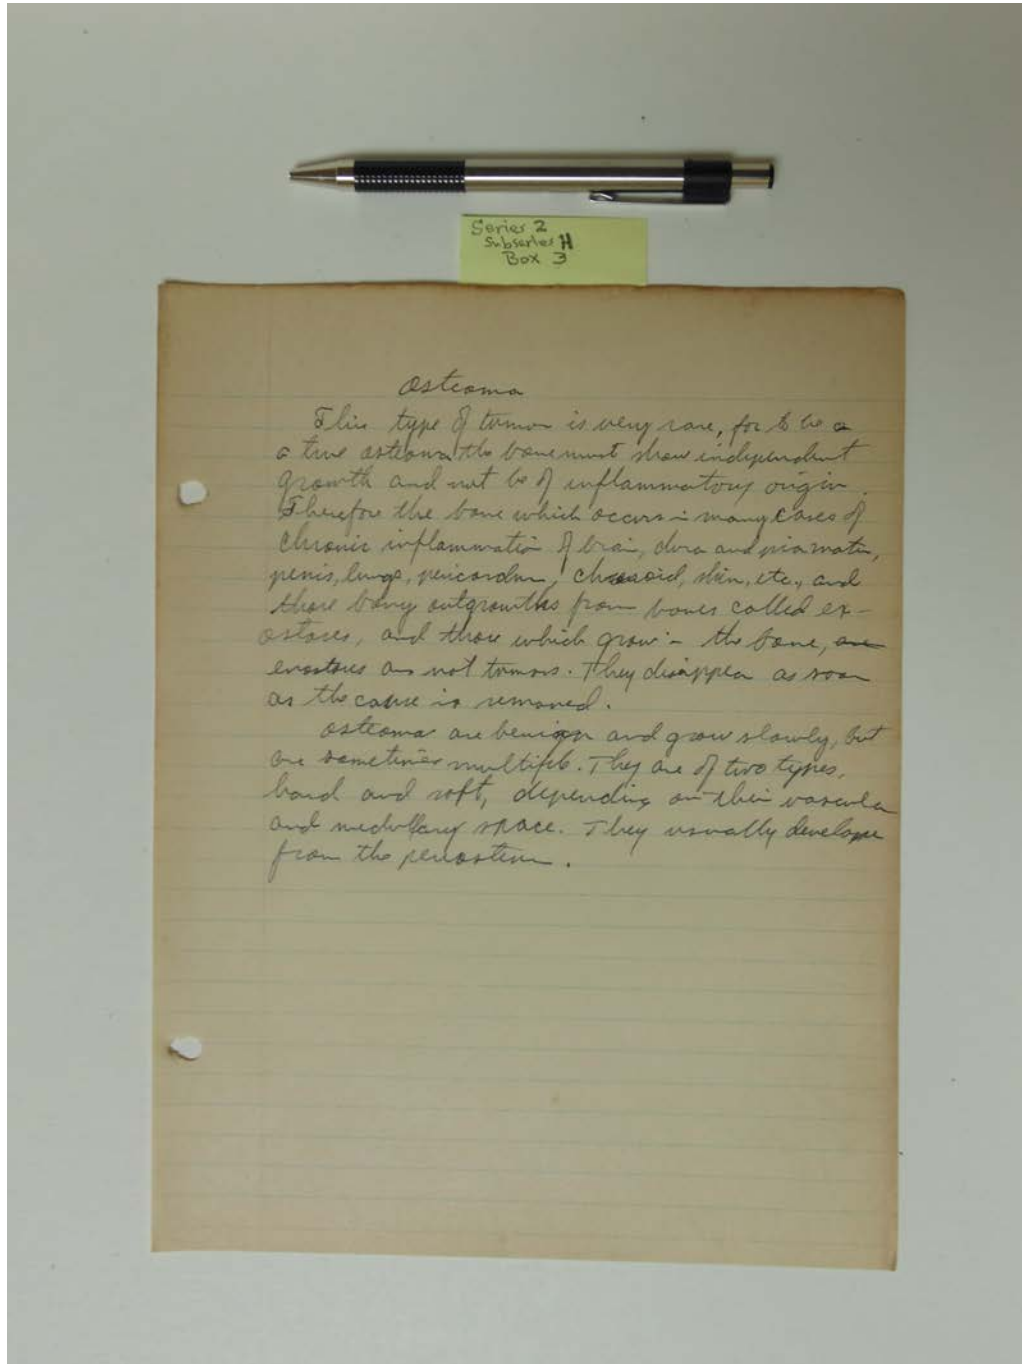 Series 2
Subseries H
Box 3
Osteoma
This type of tumor is very rare, for to be a
a true osteoma the bone must show independent
growth and not be of inflammatory origin.
Therefore the bone which occurs in many cases of
chronic inflammation of brain, dura and pia mater,
penis, lungs, pericardum, choroid, skin, etc., and
those bony outgrowths from bones called ex-
ostoses, and those which grow in the bone, are
enostoses are not tumors. They disappear as soon
as the cause is removed.
Osteoma are benign and grow slowly, but
are sometimes multiple. They are of two types,
hard and soft, depending on their vascular
and medullary space. They usually develope
from the periosteum.